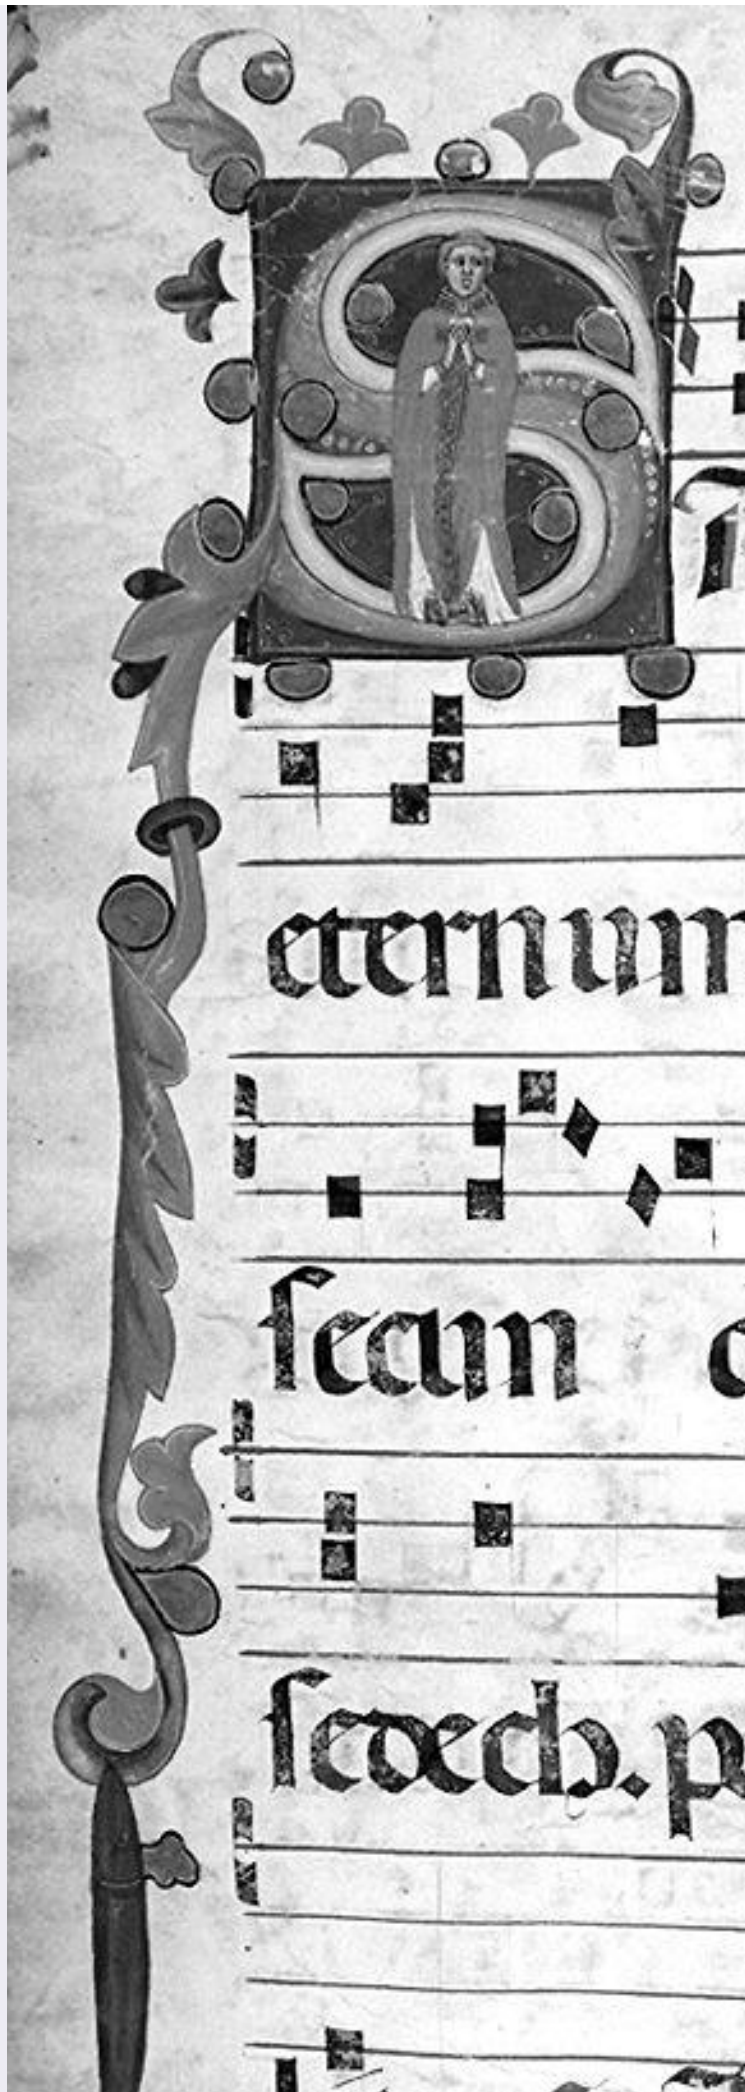 S
eternum
ſecun
ſedech. p